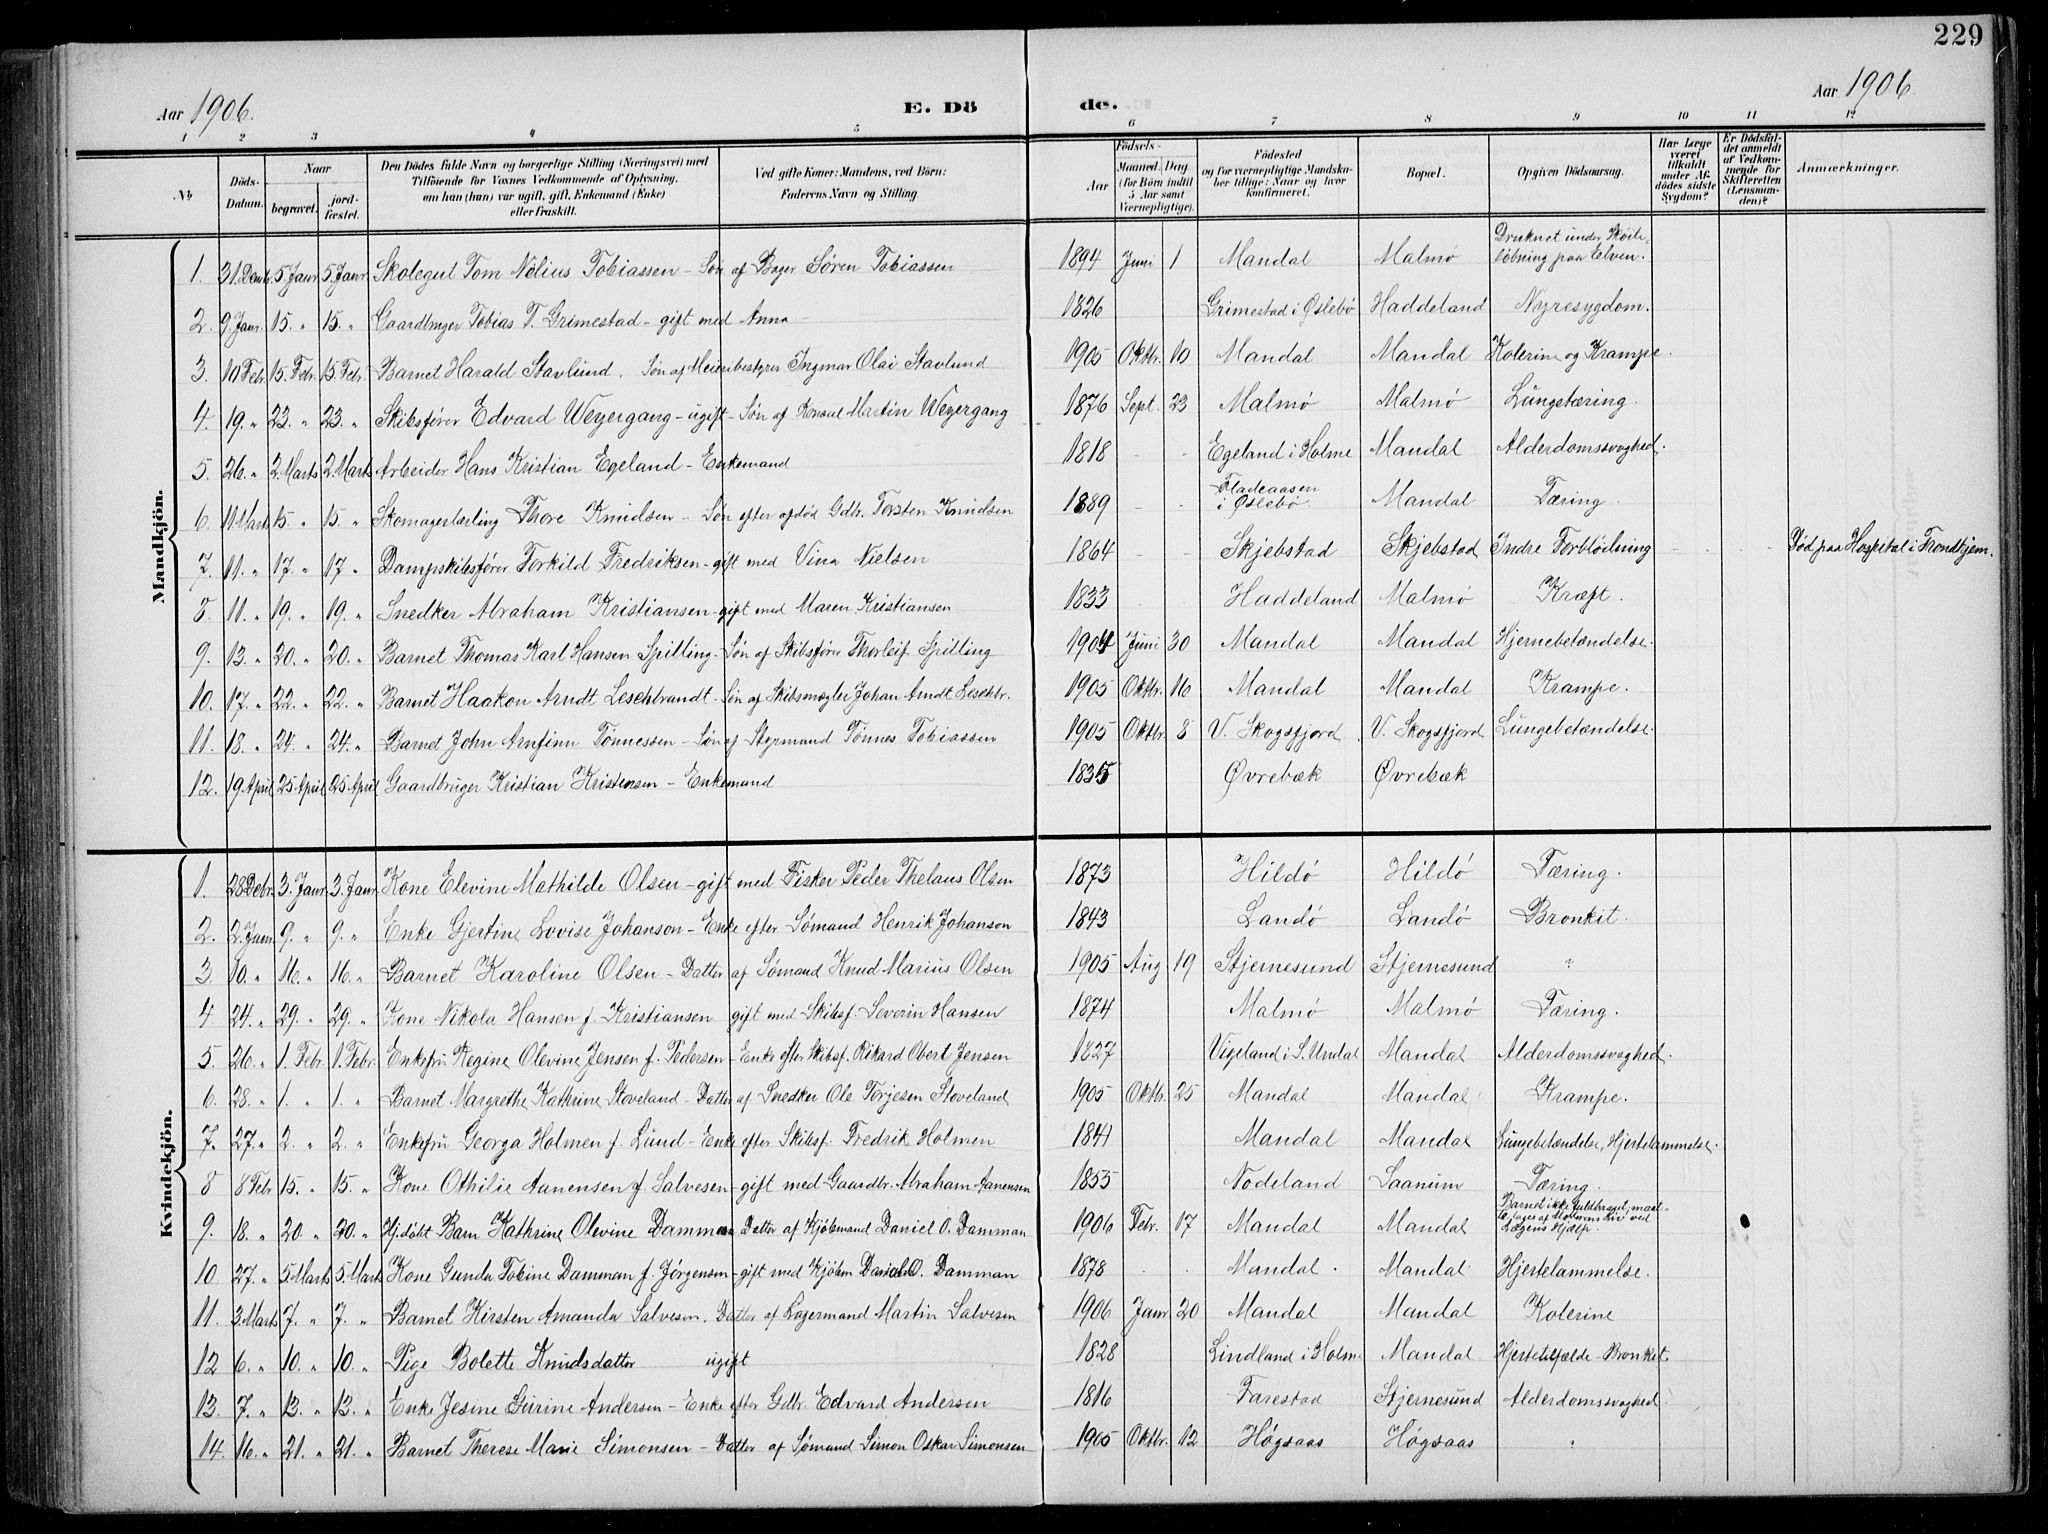 229
Aar 1906.
E. Dö
de.
Aar 1906
1 2 3 4 5 6 7 8 9 10 11 12
No.
Döds-Datum.
Naar
begravet.
jordfæstet.
Den Dödes fulde Navn og borgerlige Stilling (Næringsvei) med
Tilföiende for Voxnes Vedkommende af Oplysning,
om han (hun) var ugift, gift, Enkemand (Enke)
eller fraskilt.
Ved gifte Koner: Mandens, ved Börn:
Faderens Navn og Stilling.
Födsels-
Aar
Maaned. Dag.
(for Börn indtil
5 Aar samt
Værnepligtige).
Födested
og for værnepligtige Mandska-
ber tillige: Naar og hvor
konfirmeret.
Bopæl.
Opgiven Dödsaarsag.
Har Læge
været
tilkaldt
under Af-
dödes sidste
Sygdom?
Er Dödsfal-
det anmeldt
af Vedkom-
mende for
Skifteretten
(Lensman-
den)?
Anmærkninger.
Mandkjön.
1. 31 Decbr. 5. Janr. 5. Janr. Skolegut Tom Nölius Tobiassen - Søn af Bager Søren Tobiassen 1894 Juni 1 Mandal Malmø Druknet under Skøite-
løbning paa Elven.
2. 9. Janr. 15. " 15. " Gaardbruger Tobias T. Grimestad - gift med Anna - 1826 Grimestad i Øslebø Haddeland Nyresygdom.
3. 10 Febr. 15. Febr. 15. Febr. Barnet Harald Stavlund. Søn af Meieribestyrer Ingmar Olai Stavlund 1905 Oktbr. 10 Mandal Mandal Kolerine og Krampe.
4. 19. " 23. " 23. " Skibsfører Edvard Weyergang - ugift - Søn af Konsul Martin Weyergang 1876 Sept. 23 Malmø Malmø Lungetæring.
5. 26. " 2. Marts 2. Marts Arbeider Hans Kristian Egeland - Enkemand 1818 - - Egeland i Holme Mandal Alderdomssvaghed.
6. 11 Mart. 15. " 15. " Skomagerlærling Thore Knudsen - Søn efter afdød Gdbr. Torsten Knudsen 1889 - - Fladeaasen
i Øslebø Mandal Tæring.
7. 11. " 17. " 17. " Dampskibsfører Torkild Fredriksen - gift med Vina Nielsen 1864 - - Skjebstad Skjebstad Indre Forblødning - - - Død paa Hospital i Trondhjem.
8. 11. " 19. " 19. " Snedker Abraham Kristiansen - gift med Maren Kristiansen 1833 Haddeland Malmø Kræft.
9. 13. " 20. " 20. " Barnet Thomas Karl Hansen Spilling - Søn af Skibsfører Thorleif Spilling 1904 Juni 30 Mandal Mandal Hjernebetændelse.
10. 17. " 22. " 22. " Barnet Haakon Arndt Leschbrandt - Søn af Skibsmægler Johan Arndt Leschbr. 1905 Oktbr. 16 Mandal Mandal Krampe.
11. 18. " 24. " 24. " Barnet John Arnfinn Tönnessen - Søn af Styrmand Tönnes Tobiassen 1905 Oktbr. 8 V. Skogsfjord V. Skogsfjord Lungebetændelse.
12. 19. April 25 April 25 April Gaardbruger Kristian Kristensen - Enkemand 1835 Øvrebæk Øvrebæk
Kvindekjön.
1. 28 Decbr. 3. Janr. 3. Janr. Kone Elevine Mathilde Olsen - gift med Fisker Peder Thelaus Olsen 1873 Hildø Hildø Tæring.
2. 2. Janr. 9. " 9. " Enke Gjertine Lovise Johanson - Enke efter Sømand Henrik Johanson 1843 Landø Landø Bronkit.
3. 10. " 16. " 16. " Barnet Karoline Olsen - Datter af Sømand Knud Marius Olsen 1905 Aug 19 Stjernesund Stjernesund "
4. 24. " 29. " 29. " Kone Nikola Hansen f. Kristiansen gift med Skibsf. Severin Hansen 1874 Malmø Malmø Tæring.
5. 26. " 1. Febr. 1. Febr. Enkefru Regine Olevine Jensen f. Pedersen - Enke efter Skibsf. Rikard Obert Jensen 1827 Vigeland i S. Undal Mandal Alderdomssvaghed.
6. 28. " 1. " 1. " Barnet Margrethe Kathrine Stoveland - Datter af Snedker Ole Torjesen Stoveland 1905 Oktbr. 25 Mandal Mandal Krampe.
7. 27. " 2. " 2. " Enkefru Georga Holmen f. Lund - Enke efter Skibsf. Fredrik Holmen 1841 Mandal Mandal Lungebetændelse, Hjertelammelse.
8 8 Febr. 15. " 15. " Kone Othilie Aanensen f. Salvesen - gift med Gaardbr. Abraham Aanensen 1855 Nodeland Saanum Tæring.
9. 18. " 20. " 20. " Hj.døbt Barn Kathrine Olevine Damman Datter af Kjøbmand Daniel O. Damman 1906 Febr. 17 Mandal Mandal Barnet ikke fuldbaaret, maat-
te tages af Moderens Liv ved
Lægens Hjælp.
10 27. " 5 Marts 5. Marts Kone Gunda Tobine Damman f. Jørgensen - gift med Kjøbm Daniel O. Damman 1878 - - Mandal. Mandal Hjertelammelse.
11. 3 Marts 7. " 7. " Barnet Kirsten Amanda Salvesen. Datter af Lagermand Martin Salvesen 1906 Janr 20 Mandal Mandal Kolerine
12 6. " 10. " 10. " Pige Bolette Knudsdatter ugift 1828 Lindland i Holme Mandal Hjertetilfælde - Bronkit.
13. 7. " 13. " 13. " Enke Jesine Gurine Andersen - Enke efter Gdbr. Edvard Andersen 1816 Farestad Stjernesund Alderdomssvaghed.
14. 16. " 21. " 21. " Barnet Therese Marie Simonsen - Datter af Sømand Simon Oskar Simonsen 1905 Oktbr. 12 Høgsaas Høgsaas "